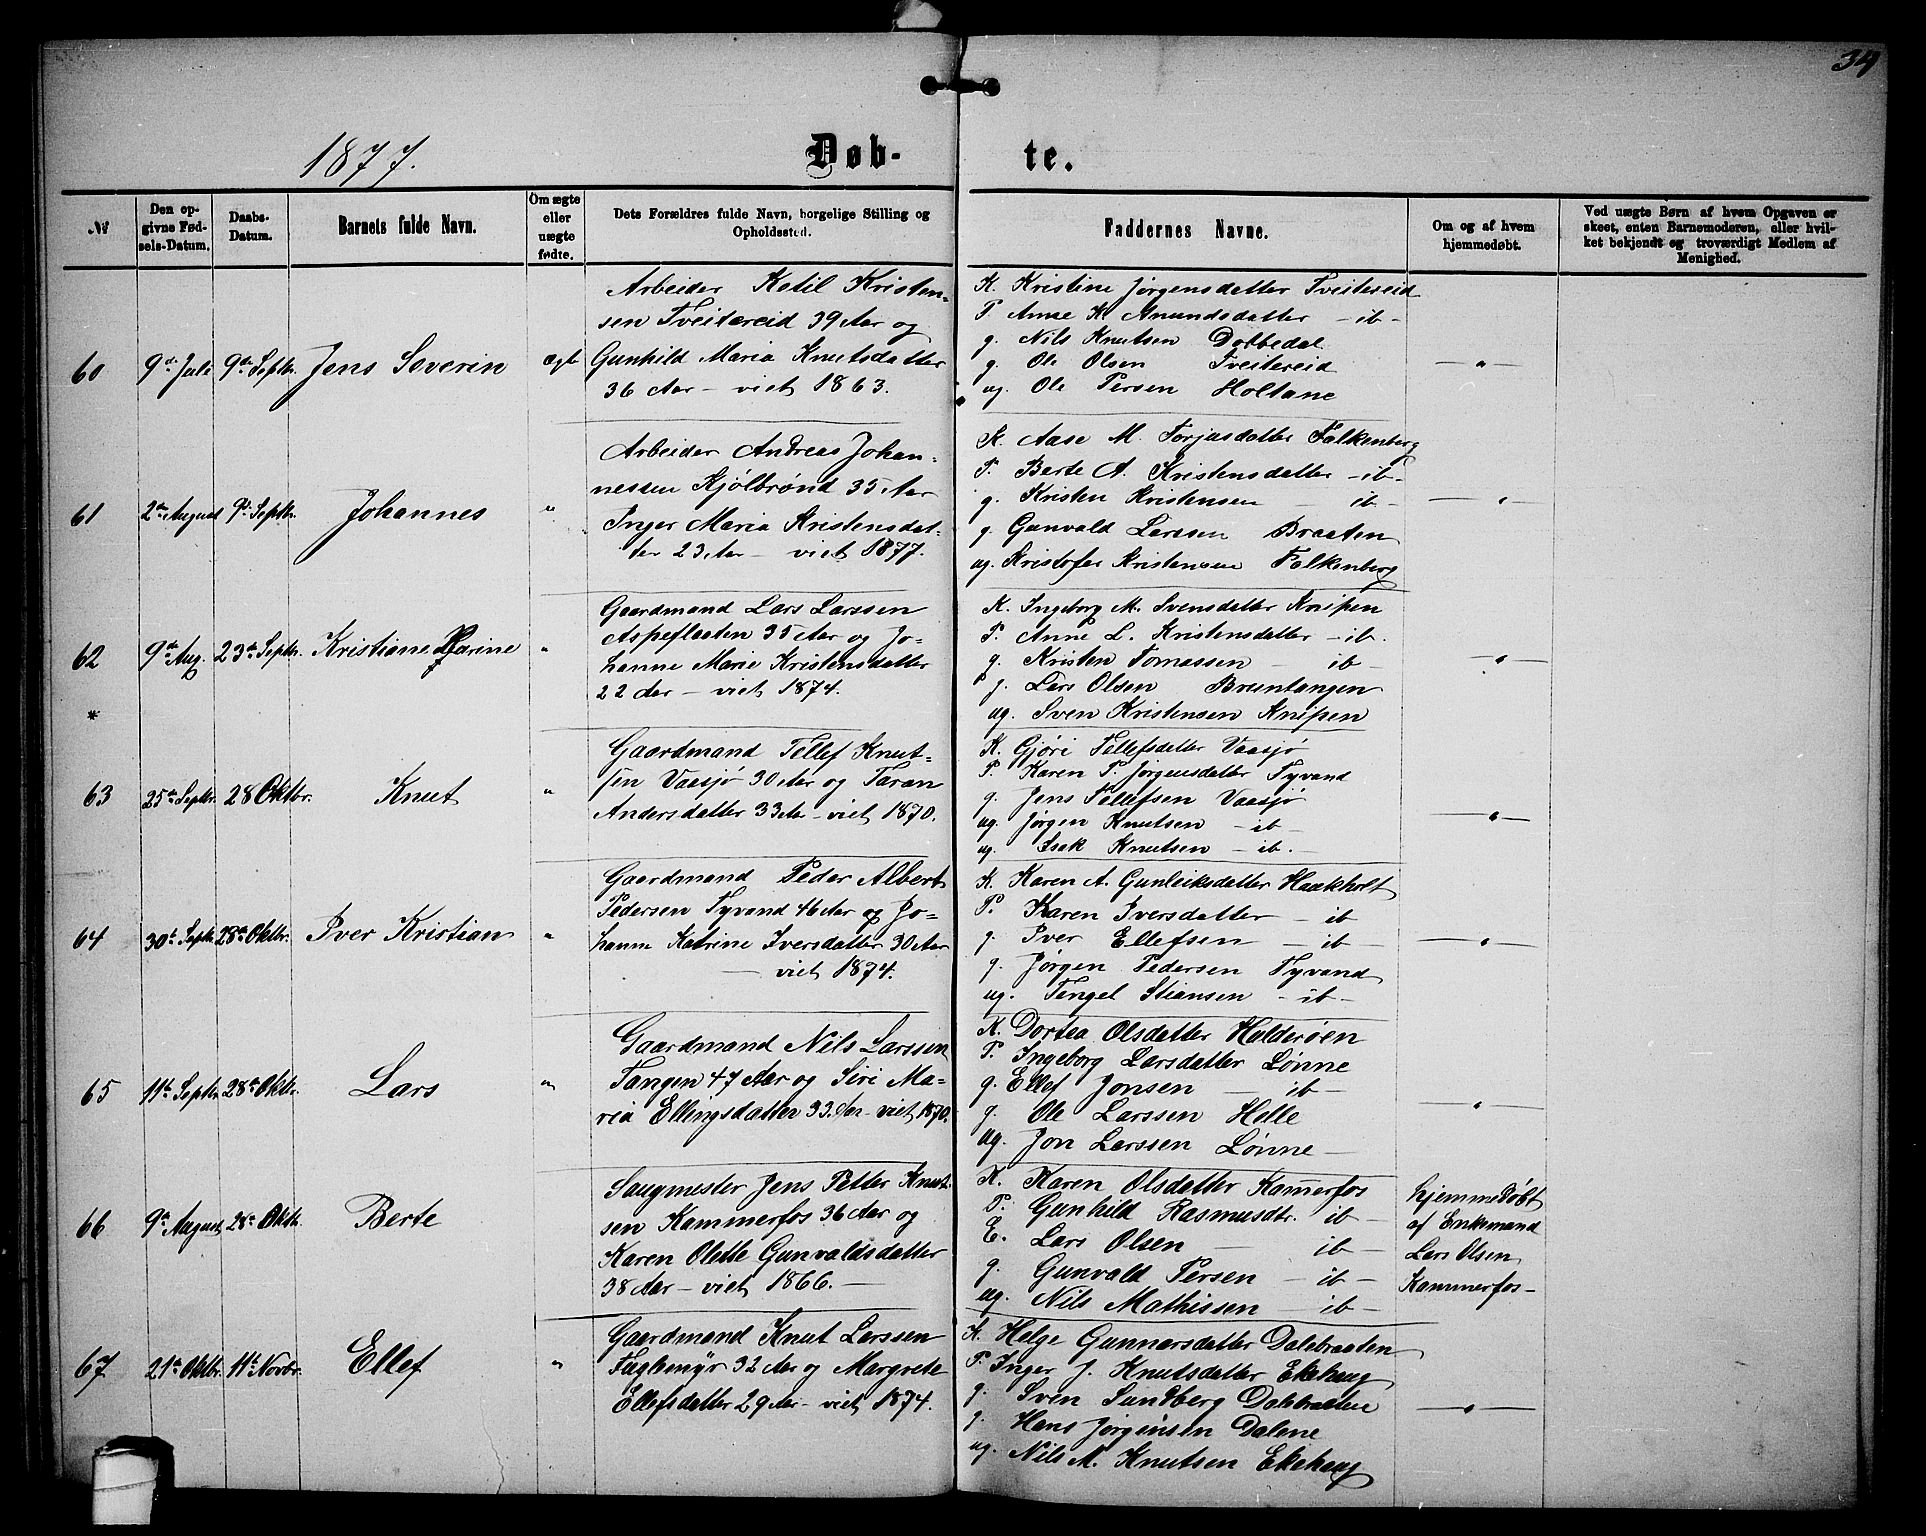 34
1877.
Døb-
te.
№
Den op-
givne Fød-
sels-Datum.
Daabs-
Datum.
Barnets fulde Navn.
Om ægte
eller
uægte
fødte.
Dets Forældres fulde Navn, borgelige Stilling og
Opholdssted.
Faddernes Navne.
Om og af hvem
hjemmedøbt.
Ved uægte Børn af hvem Opgaven er
skeet, enten Barnemoderen, eller hvil-
ket bekjendt og troværdigt Medlem af
Menighed.
60
9de Juli
9de Septr.
Jens Severin
ægte
Arbeider Ketil Kristen-
sen Tveitereid 39 Aar og
Gunhild Maria Knutsdatter
36 Aar - viet 1863.
K. Kristine Jørgensdatter Tveitereid
P. Anne K. Anundsdatter - ib -
g. Nils Knutsen Dobbedal
g. Ole Olsen Tveitereid
ug. Ole Persen Holtane
— " —
61
2den August
9de Septr.
Johannes
"
Arbeider Andreas Johan-
nessen Kjølbrønd 35 Aar
Inger Maria Kristensdat-
ter 23 Aar - viet 1877.
K. Aase M. Torjusdatter Falkenberg
P. Berte A. Kristensdatter - ib -
g. Kristen Kristensen - ib -
g. Gunvald Larssen Braaten
ug. Kristofer Kristensen Falkenberg
— " —
62
9de Aug.
23de Septr.
Kristiane Karine
"
Gaardmand Lars Larssen
Aspeflaaten 35 Aar og Jo-
hanne Marie Kristensdatter
22 Aar - viet 1874.
K. Ingeborg M. Svensdatter Knipen
P. Anne L. Kristensdatter - ib.
g. Kristen Tomassen - ib -
g. Lars Olsen Bruntangen
ug. Sven Kristensen Knipen
— " —
*
63
25de Septr.
28 Oktbr.
Knut
"
Gaardmand Tellef Knut-
sen Vaasjø 30 Aar og Taran
Andersdatter 33 Aar - viet 1870.
K. Gjøri Tellefsdatter Vaasjø
P. Karen T. Jørgensdatter Tyvand
g. Jens Tellefsen Vaasjø
ug. Jørgen Knutsen - ib -
ug. Isak Knutsen - ib.
— " —
64
30te Septr.
28de Oktbr.
Iver Kristian
"
Gaardmand Peder Albert
Pedersen Tyvand 46 Aar og Jo-
hanne Katrine Iversdatter 30 Aar
- viet 1874.
K. Karen A. Gunleiksdatter Haakholt
P. Karen Iversdatter - ib
g. Iver Ellefsen - ib
g. Jørgen Pedersen Tyvand
ug. Tengel Stiansen - ib -
— " —
65
11te Septr.
28de Oktbr.
Lars
"
Gaardmand Nils Larssen
Tangen 47 Aar og Siri Ma-
ria Ellingsdatter 33 Aar - viet 1870.
K. Dortea Olsdatter Halderøen
P. Ingeborg Larsdatter Lønne
g. Ellef Jonsen - ib -
g. Ole Larssen Helle
ug. Jon Larssen Lønne -
— " —
66
9de August
28de Oktbr.
Berte
Saugmester Jens Petter Knut-
sen Kammerfos 36 Aar og
Karen Olette Gunvaldsdatter
38 Aar - viet 1866. -
K. Karen Olsdatter Kammerfos
P. Gunhild Rasmusdtr. ib -
E. Lars Olsen - ib -
g. Gunvald Persen - ib -
ug. Nils Mathissen - ib -
hjemmedøbt
af Enkemand
Lars Olsen
Kammerfos -
67
21de Oktbr.
11te Novbr.
Ellef
"
Gaardmand Knut Larssen
Fuglemyr 32 Aar og Margrete
Ellefsdatter 29 Aar - viet 1874.
K. Helge Gunnarsdatter Dalebraaten
P. Inger J. Knutsdatter Ekehaug
g. Sven Sundberg Dalebraaten
g. Hans Jørgensen Dalene
ug. Nils M. Knutsen Ekehaug
— " —